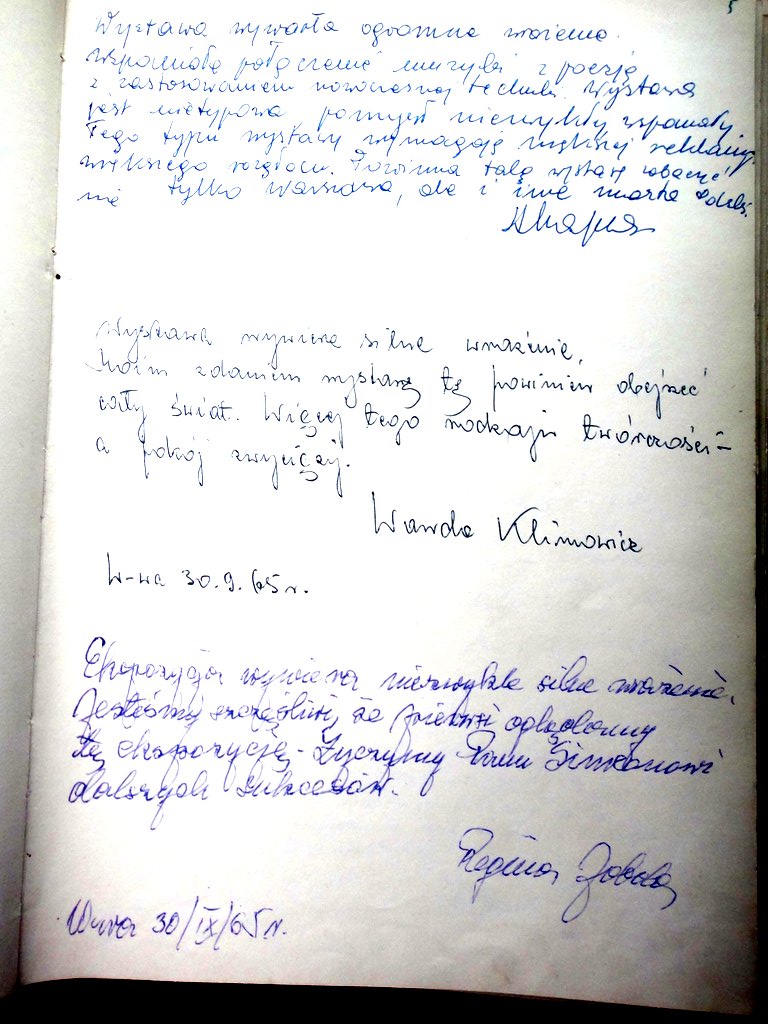 5
Wystawa wywarła ogromne wrażenie.
Wspaniałe połączenie muzyki z poezją
z zastosowaniem nowoczesnej techniki. Wystawa
jest nietypowa pomysł niezwykły wspaniały.
Tego typu wystawy wymagają większej reklamy
większego rozgłosu. Powinna taką wystawę zobaczyć
nie tylko Warszawa, ale i inne miasta Polski.
Wystawa wywiera silne wrażenie,
Moim zdaniem wystawę tę powinien obejrzeć
cały świat. Więcej tego rodzaju twórczości –
a pokój zwycięży.
Wanda Klimowicz
W-wa 30.9.65 r.
Ekspozycja wywiera niezwykle silne wrażenie.
Jesteśmy szczęśliwi, że pierwsi oglądamy
tę ekspozycję – Życzymy Panu Simeonowi
dalszych sukcesów.
Regina
W-wa 30/IX/65 r.